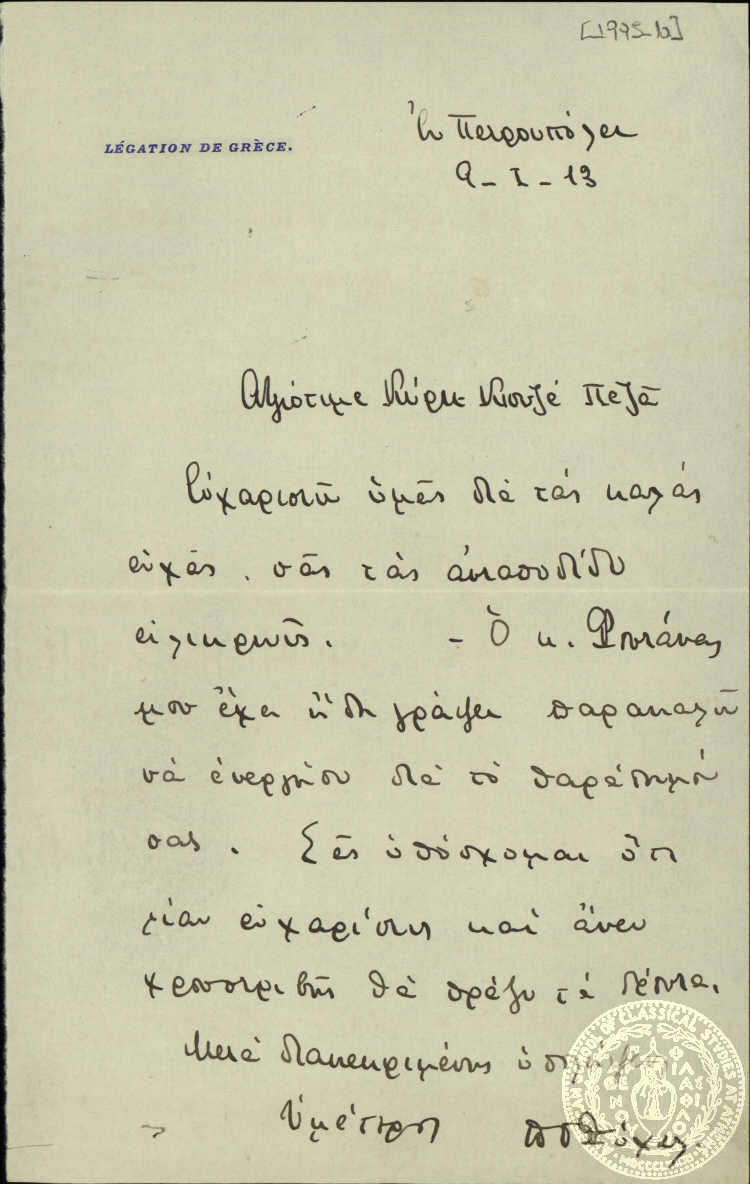 [1995-b]
LÉGATION DE GRÈCE.
Ἐν Πετρουπόλει
9 - I - 13
Ἀξιότιμε Κύριε Κιουζέ Πεζᾶ
Εὐχαριστῶ ὑμᾶς διὰ τὰς καλάς
εὐχάς. σᾶς τὰς ἀνταποδίδω
εἰλικρινῶς. - Ὁ κ.
μου ἔχει ἤδη γράψει παρακαλῶ
νὰ ἐνεργήσω διὰ τὸ παράσημόν
σας. Σᾶς ὑπόσχομαι ὅτι
λίαν εὐχαρίστως καὶ ἄνευ
χρονοτριβῆς θὰ πράξω τὰ δέοντα.
Μετὰ διακεκριμένης ὑπολήψεως
Ὑμέτερος